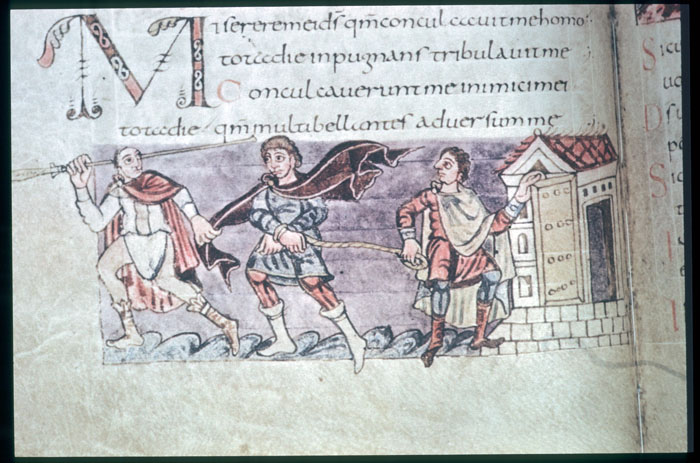 Miserere mei ds qm conculcavit me homo
tota die inpugnans tribulavit me
Conculcaverunt me inimici mei
tota die qm multi bellantes adversum me
S icu
S
D
S
I
I